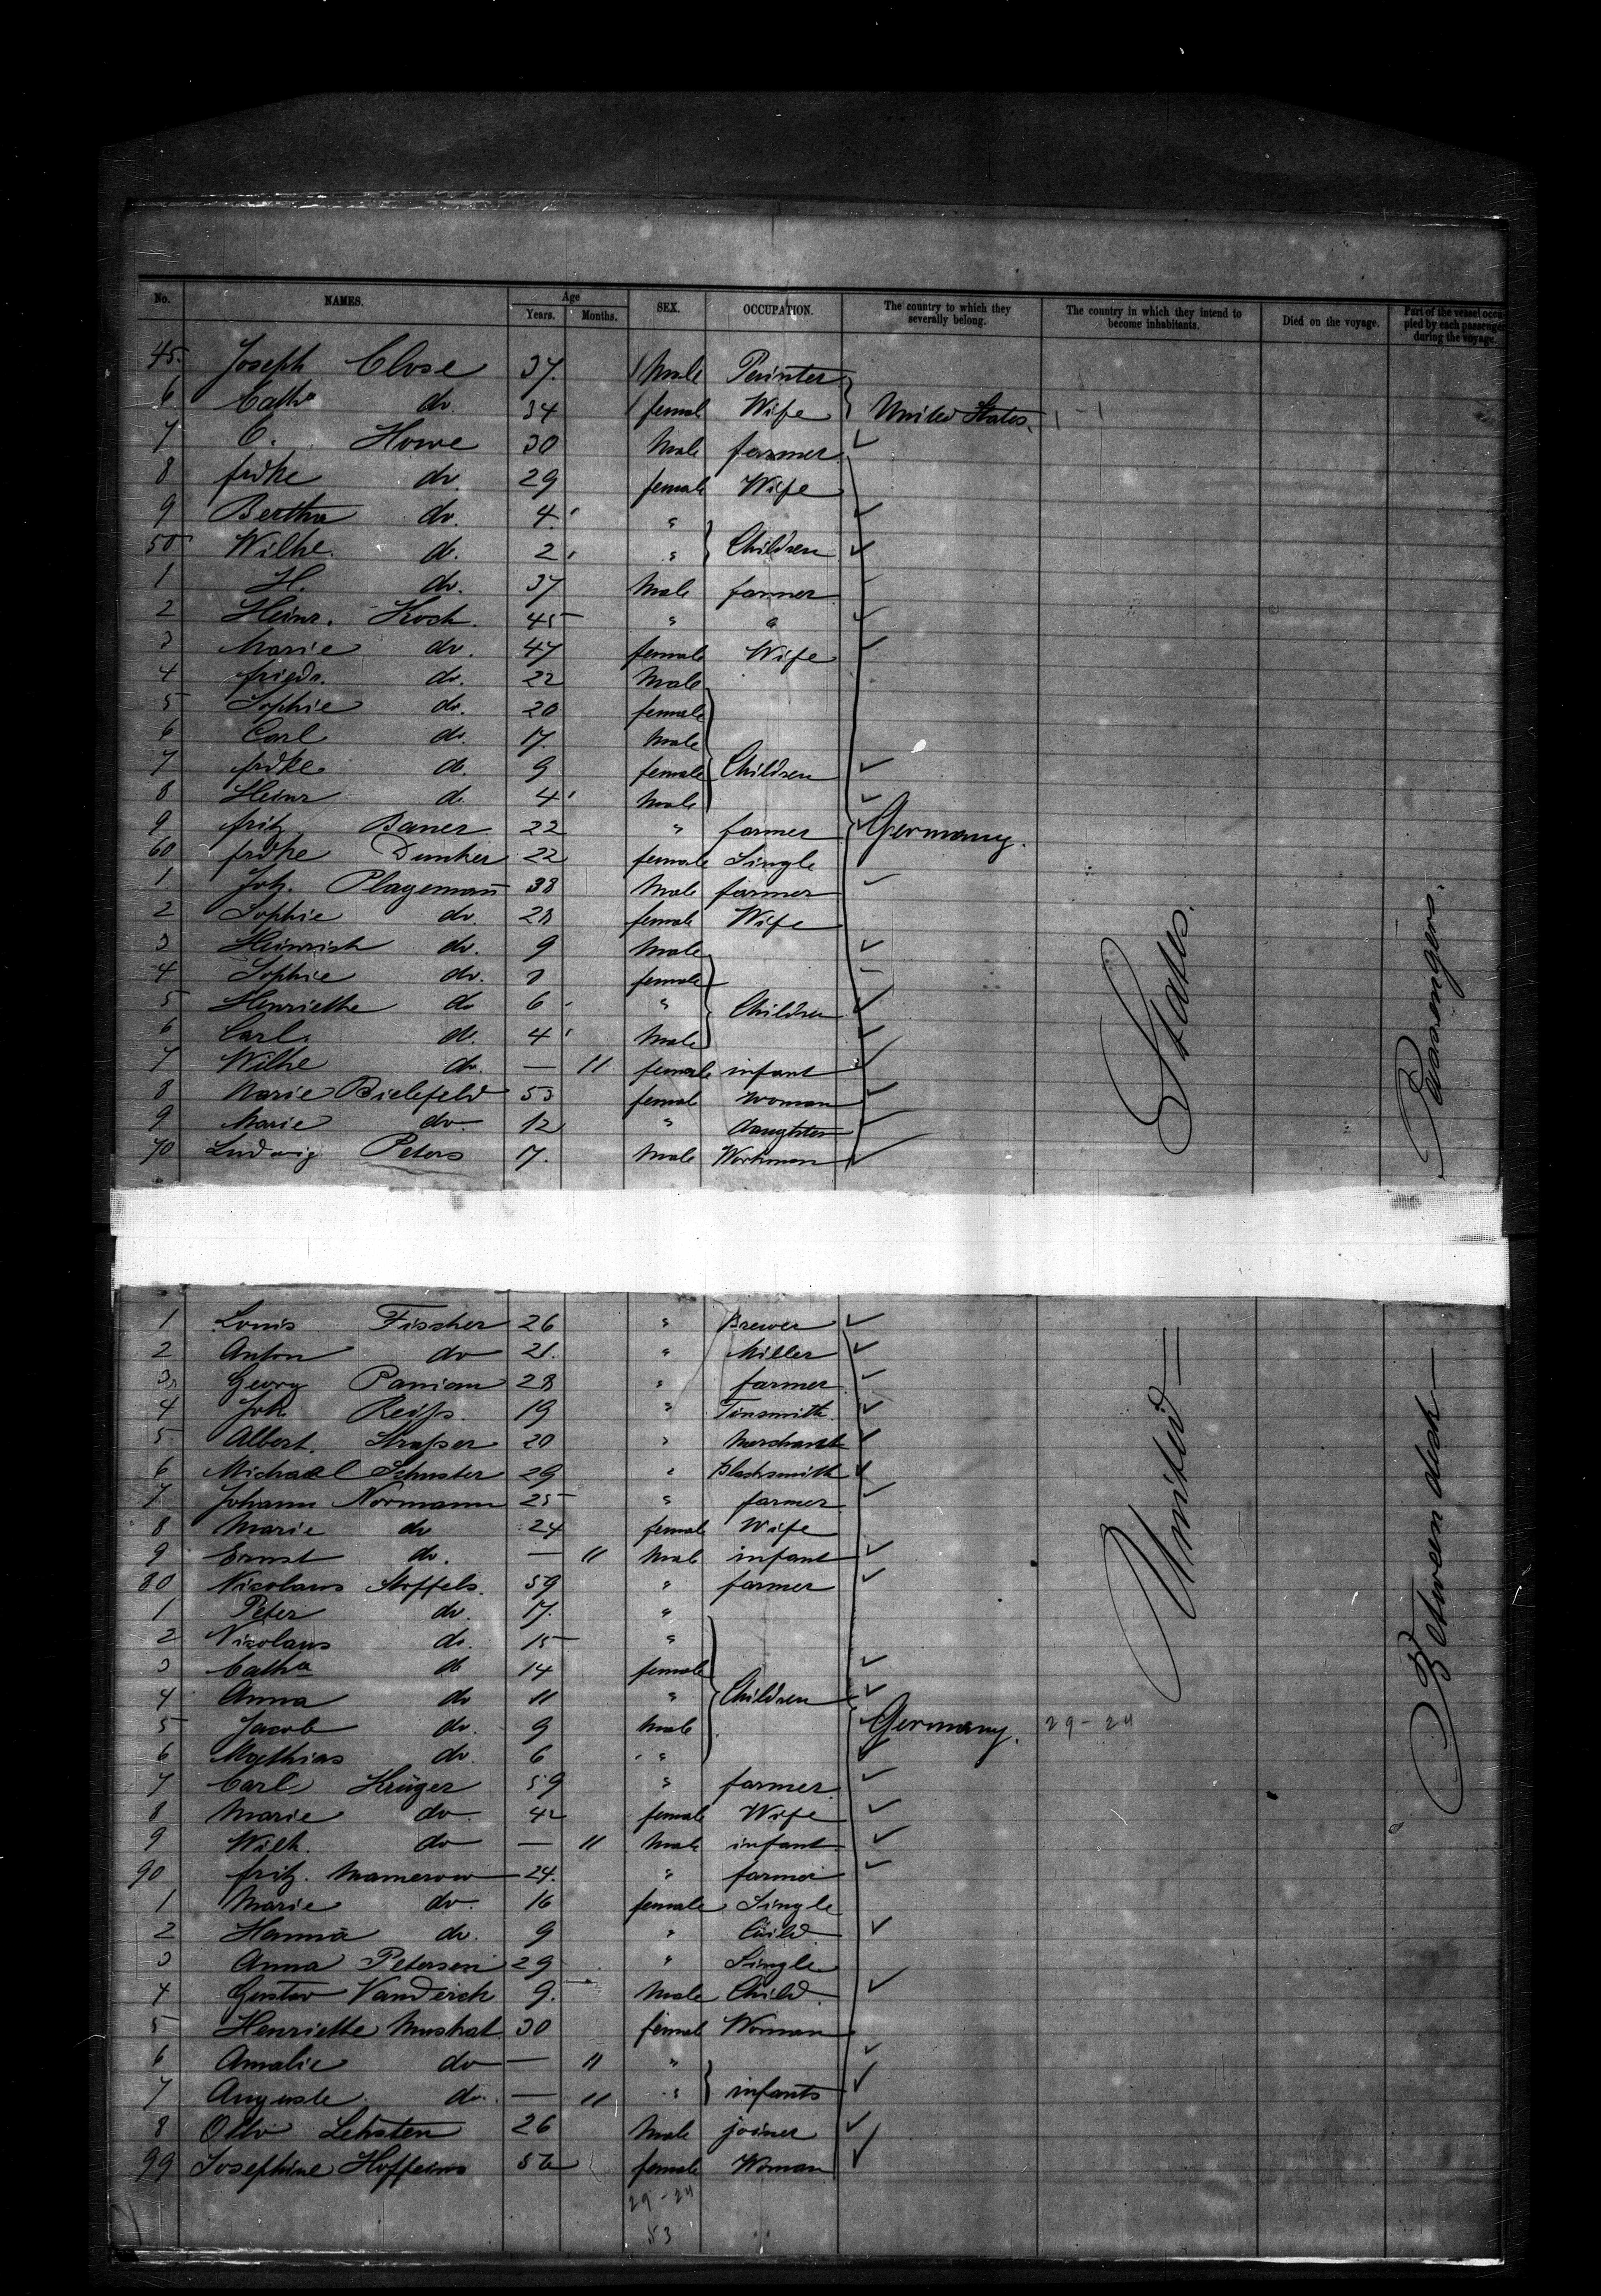 No. NAMES. Age Years. Months. SEX. OCCUPATION. The country to which they severally belong. The country in which they intend to become inhabitants. Died on the voyage. Part of the vessel occupied by each passenger during the voyage.
45. Joseph Close 37. Male Painter
6 Catha do. 34 femal. Wife United States. 1-1
7 C. Howe 30 Male farmer
8 fridke do. 29 female Wife
9 Bertha do. 4 "
50 Wilhe. do. 2 " Children
1 H. do. 37 Male farmer
2 Heinr. Koch. 45 " "
3 Marie do. 47 female Wife
4 friedr. do. 22 Male
5 Sophie do. 20 female
6 Carl do. 17. Male
7 fridke do. 9 female Children
8 Heinr do. 4 Male
9 fritz Baner 22 " farmer Germany.
60 fridke Dunker 22 female Single
1 Joh. Plagemañ 38 Male farmer
2 Sophie do. 28 female Wife
3 Heinrich do. 9 Male
4 Sophie do. female
5 Henriethe do 6 " Children
6 Carl. do. 4 Male
7 Wilhe do. — 11 female infant
8 Marie Bielefeld 53 female Woman
9 Marie do. 12 " daughter
70 Ludwig Peters 17. Male Workman
States.
Passengers.
1 Louis Fischer 26 " Brewer
2 Anton do 21. " Miller
3 Georg Panian 28 " farmer
4 Joh Reifs. 19 " Tinsmith
5 Albert. Strafser 20 " Merchant
6 Michael Schuster 29 " Blacksmith
7 Johann Normann 25 " farmer
8 Marie do 24 female Wife
9 Ernst do. — 11 Male infant
80 Nicolaus Stoffels. 59 " farmer
1 Peter do. 17. "
2 Nicolaus do. 15 "
3 Catha do 14 female
4 Anna do 11 " Children
5 Jacob do. 9 Male Germany. 29-24
6 Mathias do. 6 "
7 Carl Krüger 59 " farmer
8 Marie do 42 female Wife
9 Wilh. do — 11 Male infant
90 fritz. Mamerow 24. " farmer
1 Marie do. 16 female Single
2 Hanna do. 9 " Child
3 Anna Petersen 29 " Single
4 Gustav Vanderich 9. Male Child.
5 Henriette Muskat 30 female Woman
6 Amalie do — 11 "
7 Auguste do. — 11 " infants
8 Otto Lehsten 26 Male joiner
99 Josephine Hoffeins female Woman
29-24
53
United
Between deck